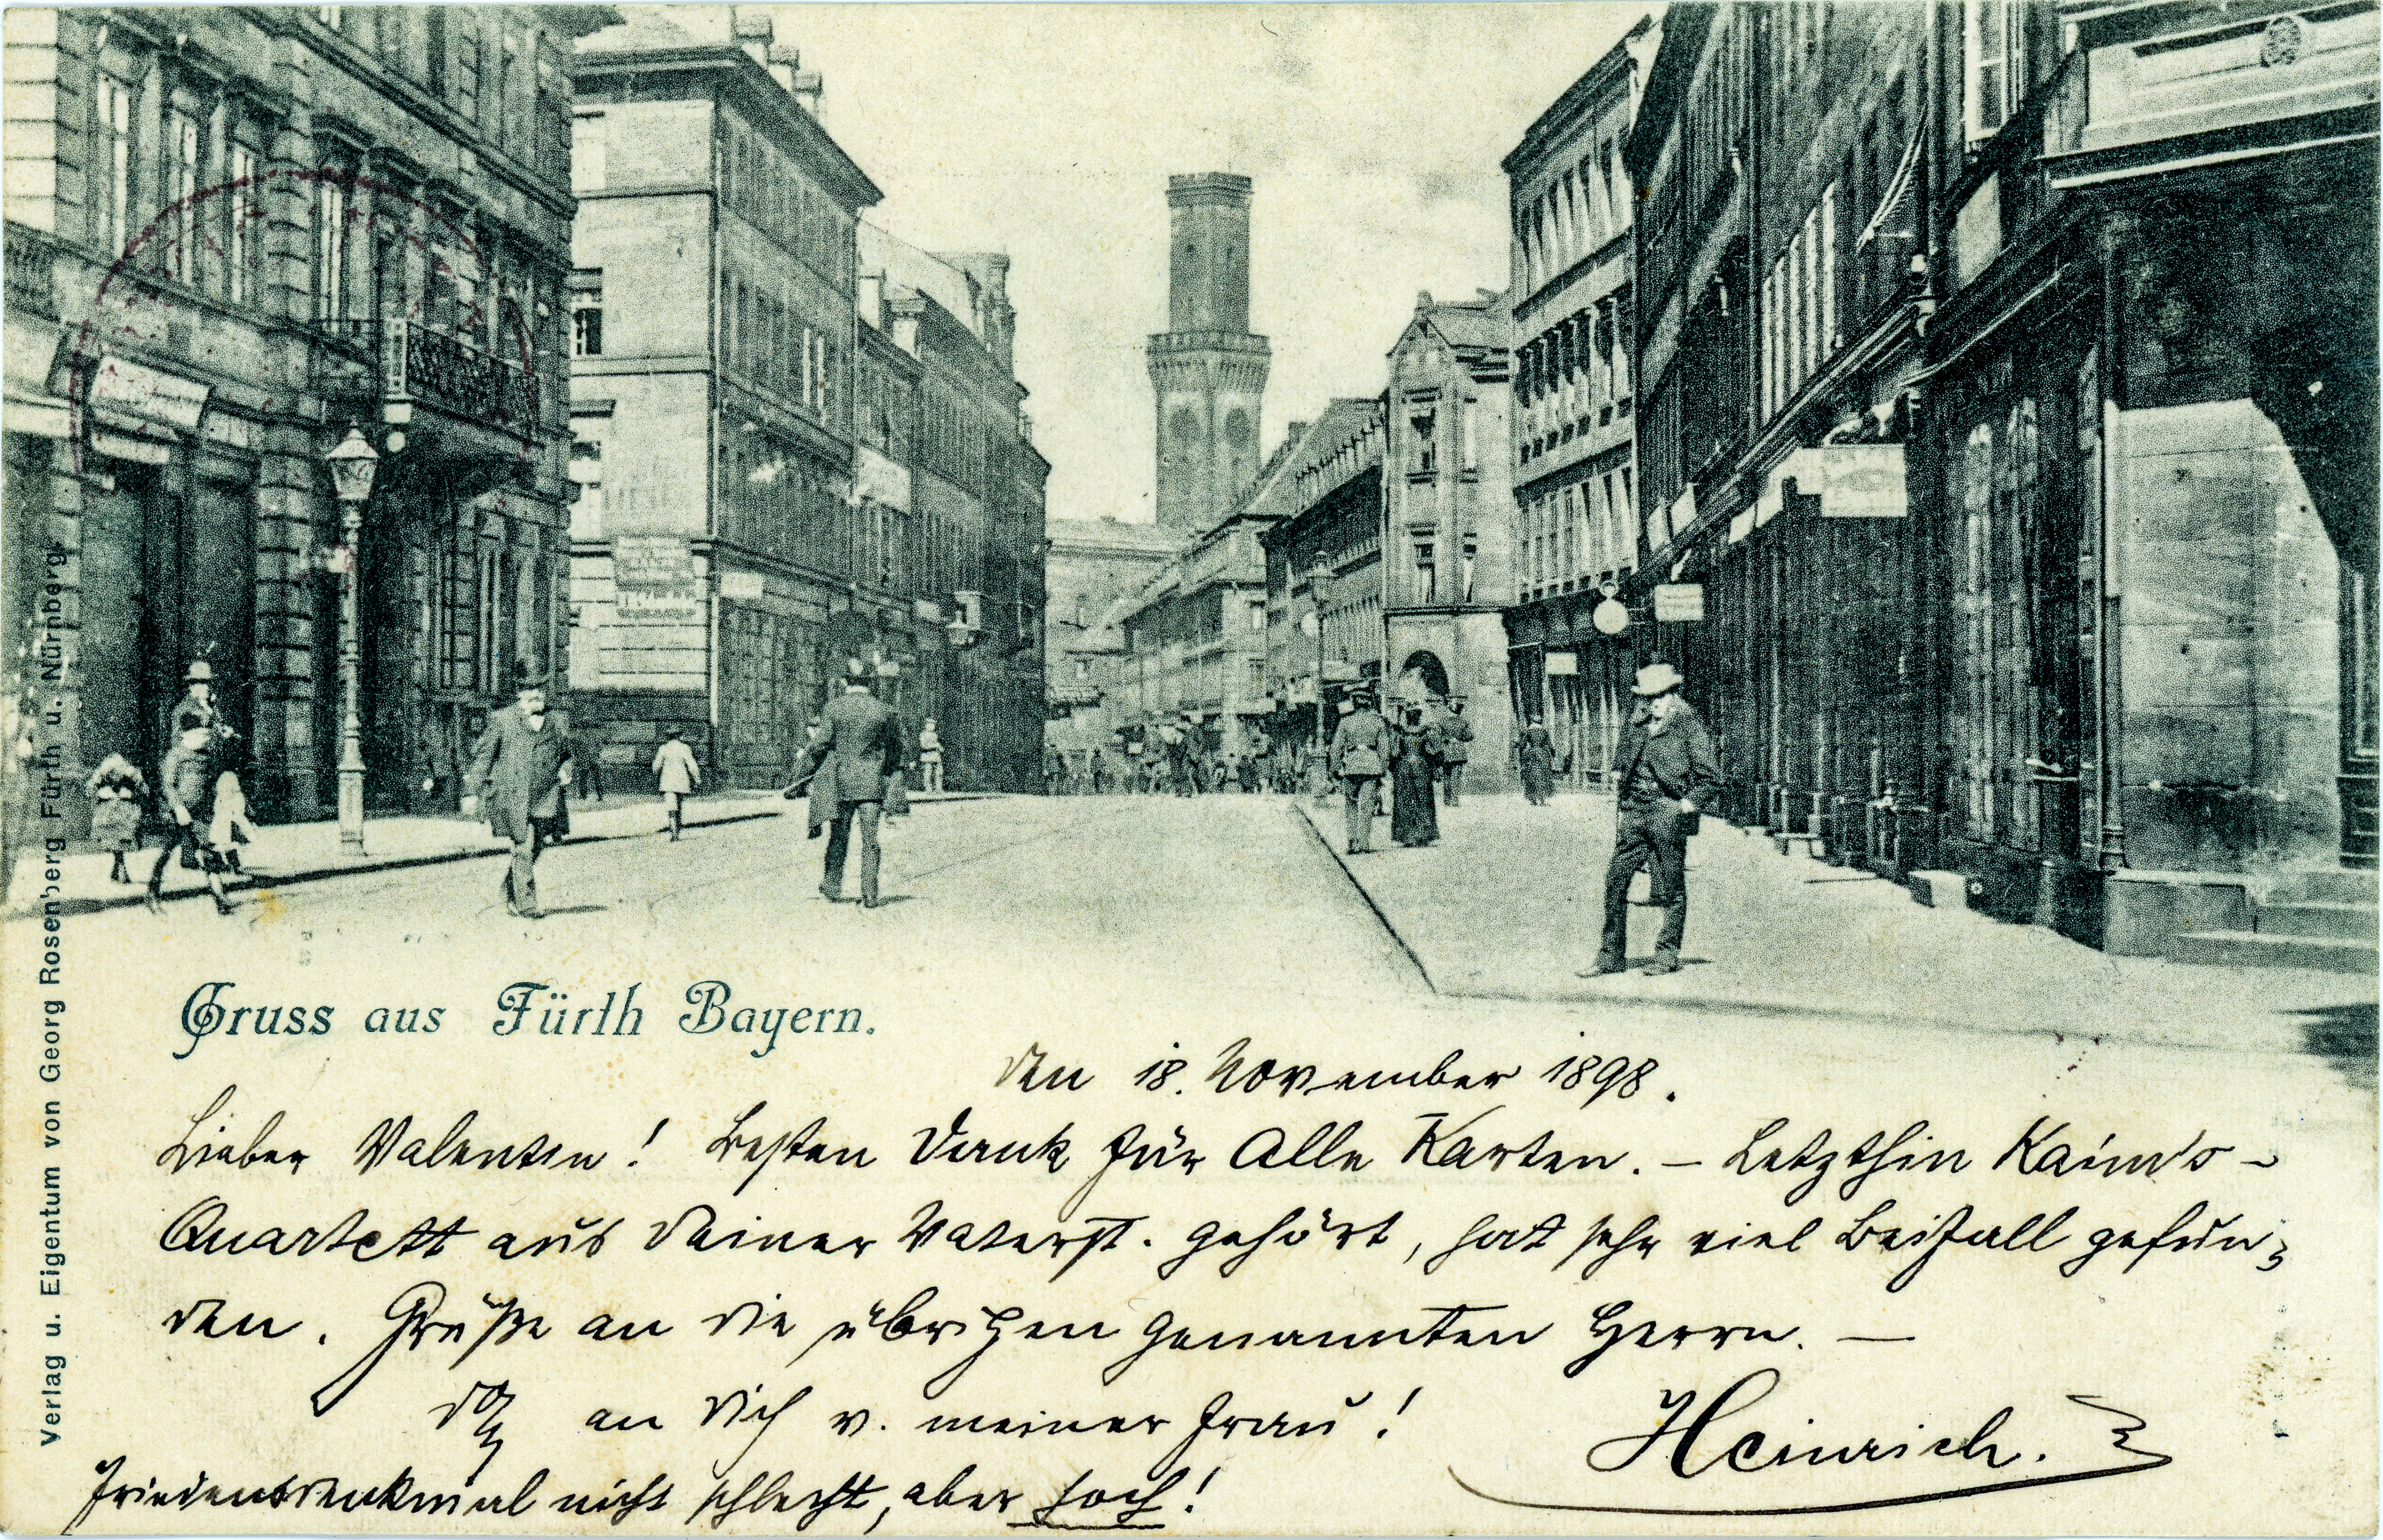 Verlag u. Eigentum von Georg Rosenberg Fürth u. Nürnberg.
Gruss aus Fürth Bayern.
den 18. November 1898.
Lieber Valentin! Besten Dank für alle Karten. – Letzthin Kaim's-
Quartett aus Deiner Vaterst. gehört, hat sehr viel Beifall gefun-
den. Grüße an die übrigen genannten Herrn. —
do. an Dich v. meiner Frau!
Heinrich.
Friedensdenkmal nicht schlecht, aber hoch!